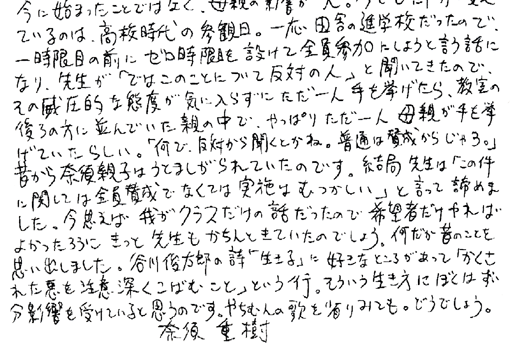 今に始まったことではなく、母親の影響が
ているのは、高校時代の参観日。一応田舎の進学校だったので、
一時限目の前にゼロ時限を設けて全員参加にしようと言う話に
なり、先生が「ではこのことについて反対の人」と聞いてきたので、
その威圧的な態度が気に入らずにただ一人手を挙げたら、教室の
後ろの方に並んでいた親の中で、やっぱりただ一人母親が手を挙
げていたらしい。「何で、反対から聞くとかね。普通は賛成からじゃろ。」
昔から奈須親子はうとましがられていたのです。結局先生は「この件
に関しては全員賛成でなくては実施はむつかしい」と言って諦めま
した。今思えば我がクラスだけの話だったので希望者だけやれば
よかったろうにきっと先生もかちんときていたのでしょう。何だか昔のことを
思い出しました。谷川俊太郎の詩「生きる」に好きなところがあって「かくさ
れた悪を注意深くこばむこと」という行。そういう生き方にぼくはずい
分影響を受けていると思うのです。やちむんの歌を省りみても。どうでしょう。
奈須重樹